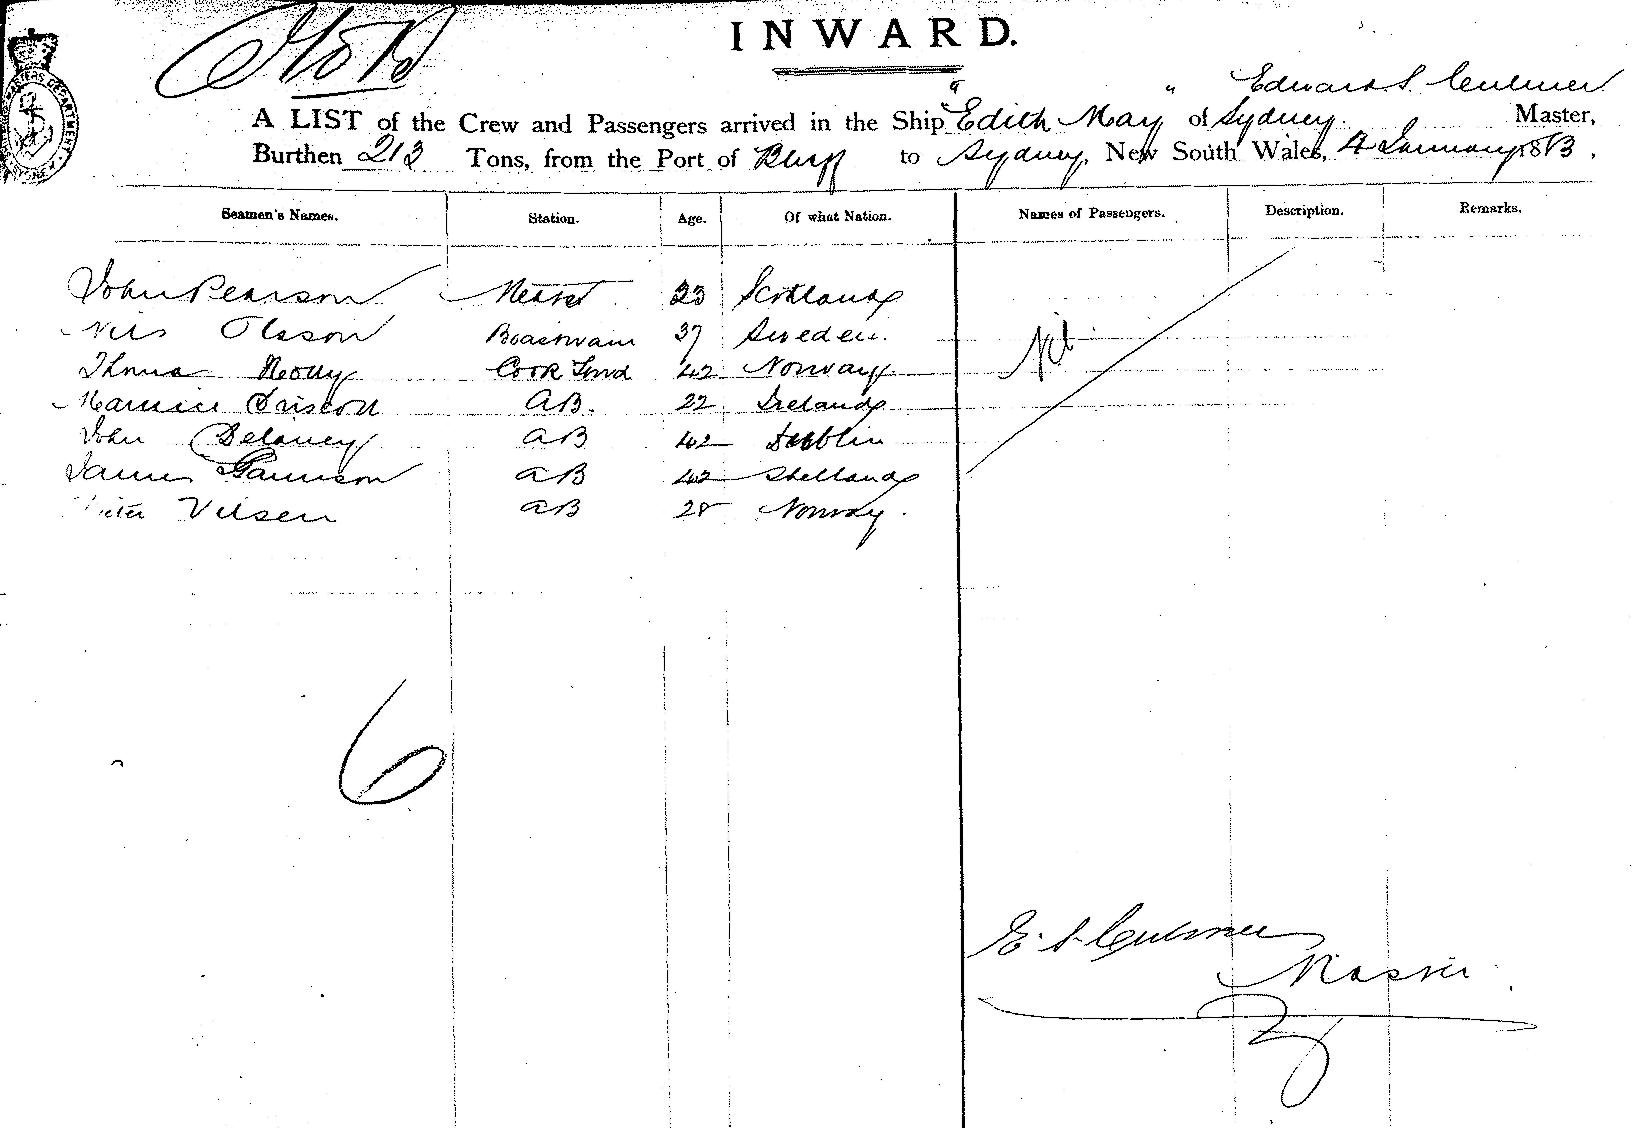 INWARD.
Edward S. Culmer
A LIST of the Crew and Passengers arrived in the Ship "Edith May" of Sydney Master,
Burthen 213 Tons, from the Port of Bluff to Sydney, New South Wales, 4 January 18
Seamen's Names. Station. Age. Of what Nation. Names of Passengers. Description. Remarks.
John Pearson 23 Scotland
Nils Olsson Boatswain 37 Sweden
Cook 42 Norway Nil
Maurice Driscoll AB. 22 Ireland
John Delaney AB 42 Dublin
James AB 42 Shetland
AB 28 Norway
6
E. S. Culmer
Master